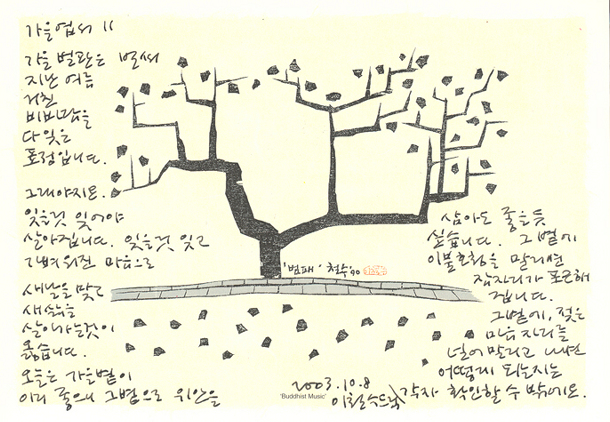 가을엽서 11
가을 벌판은 벌써
지난 여름
거친
비바람을
다 잊은
표정입니다.
그래야지요.
잊을것 잊어야
살아집니다. 잊을것 잊고
가벼워진 마음으로
새날을 맞고
새삶을
살아가는것이
옳습니다.
오늘은 가을볕이
이리 좋으니 그볕으로 위안을
삼아도 좋을듯
싶습니다. 그볕에
이불호청을 말리면
잠자리가 포근해
집니다.
그볕에, 젖은
마음자리를
널어 말리고 나면
어떻게 되는지는
각자 확인할 수 밖에요.
'범패' 철수 '90
2003.10.8
'Buddhist Music'
이철수드림